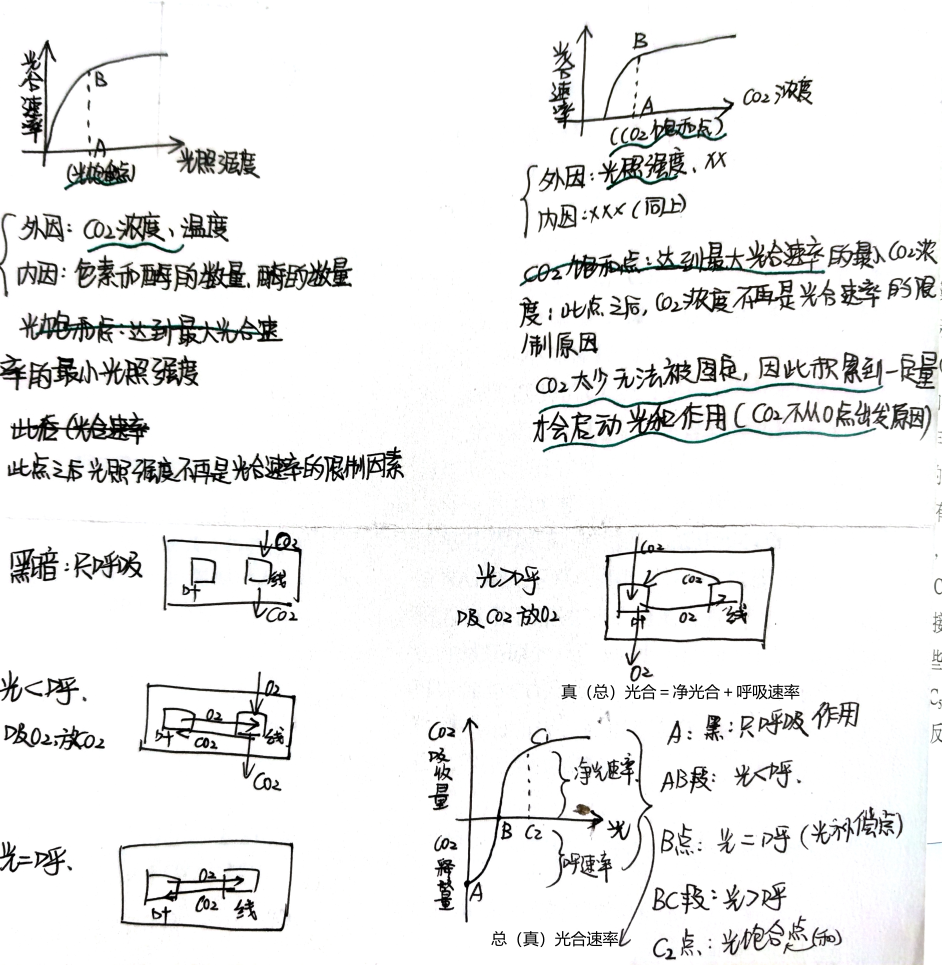 光合速率
B
A
光照强度
(光饱和点)
外因：CO2浓度、温度
内因：色素和酶的数量，酶的数量
光饱和点：达到最大光合速
率的最小光照强度
此后（光合速率
此点之后光照强度不再是光合速率的限制因素
光合速率
B
A
CO2浓度
(CO2饱和点)
外因：光照强度、××
内因：×××(同上)
CO2饱和点：达到最大光合速率的最小CO2浓
度；此点之后，CO2浓度不再是光合速率的限
制原因
CO2太少无法被固定，因此积累到一定量
才会启动光合作用(CO2不从0点出发原因)
黑暗：只呼吸
叶
线
CO2
CO2
光<呼.
吸O2，放CO2
O2
O2
CO2
叶
线
CO2
光=呼.
O2
CO2
叶
线
光>呼
吸CO2放O2
CO2
CO2
O2
叶
线
O2
真（总）光合＝净光合＋呼吸速率
CO2吸收量
CO2释放量
C1
B
C2
光
A
净光速率.
呼速率
总（真）光合速率
A：黑：只呼吸作用
AB段：光<呼.
B点：光=呼(光补偿点)
BC段：光>呼
C2点：光饱合点(和)